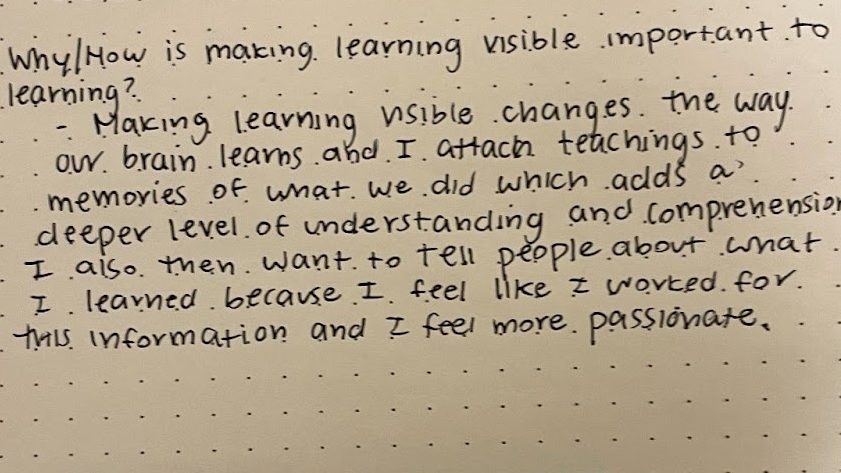 Why/How is making learning visible important to
learning?
- Making learning visible changes the way
our brain learns and I attach teachings to
memories of what we did which adds a
deeper level of understanding and comprehension
I also then want to tell people about what
I learned because I feel like I worked for
this information and I feel more passionate.